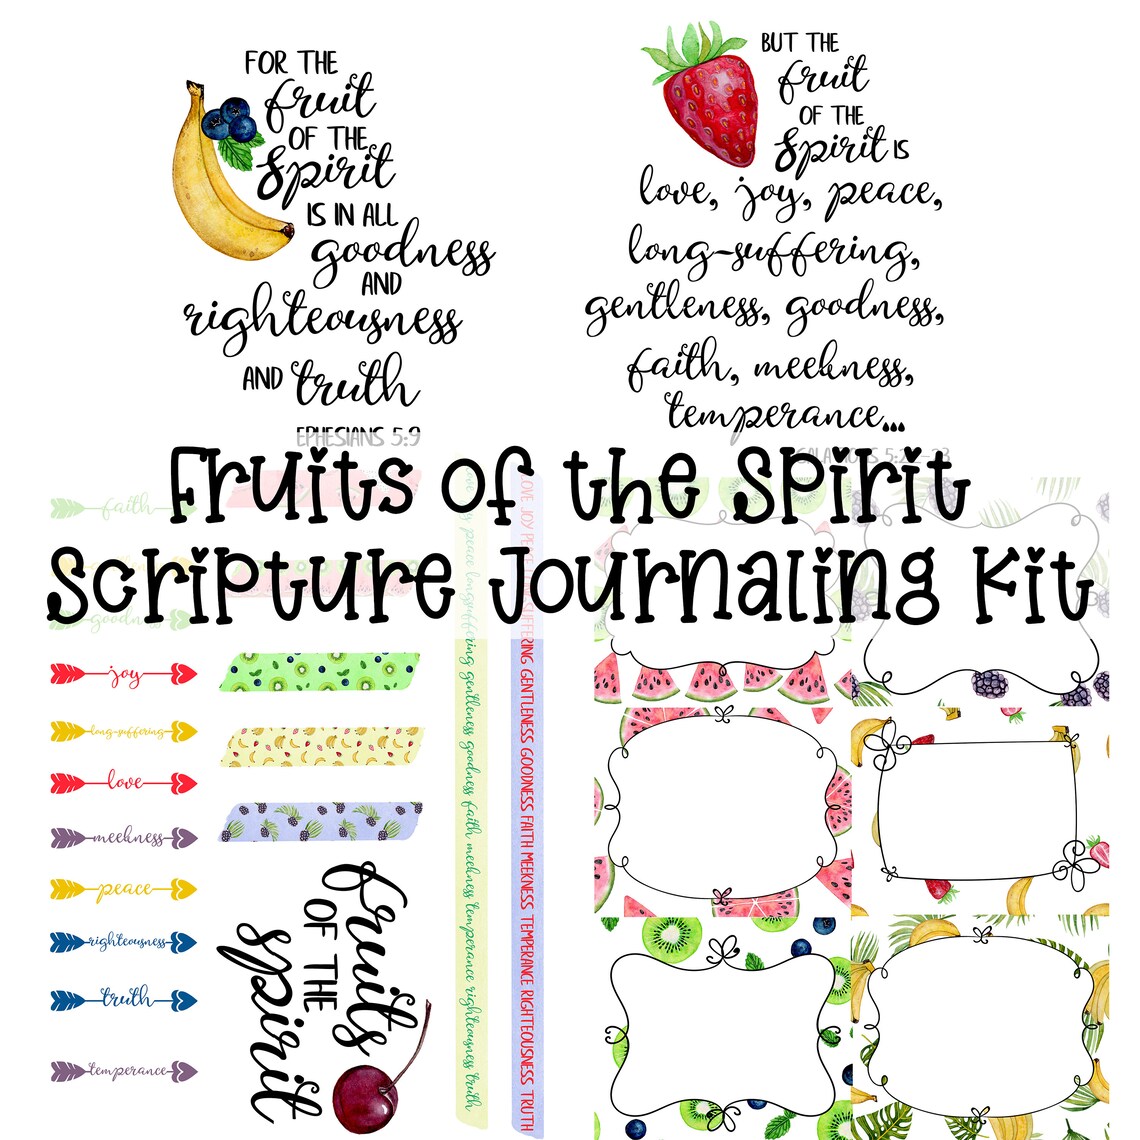 FOR THE
fruit
OF THE
Spirit
IS IN ALL
goodness
AND
righteousness
AND truth
EPHESIANS 5:9
BUT THE
fruit
OF THE
Spirit IS
love, joy, peace,
long-suffering,
gentleness, goodness,
faith, meekness,
temperance...
Fruits of the Spirit
Scripture Journaling Kit
faith
goodness
joy
long-suffering
love
meekness
peace
righteousness
truth
temperance
fruits
OF THE
spirit
joy peace longsuffering gentleness goodness faith meekness temperance righteousness truth
LOVE JOY PEACE LONGSUFFERING GENTLENESS GOODNESS FAITH MEEKNESS TEMPERANCE RIGHTEOUSNESS TRUTH